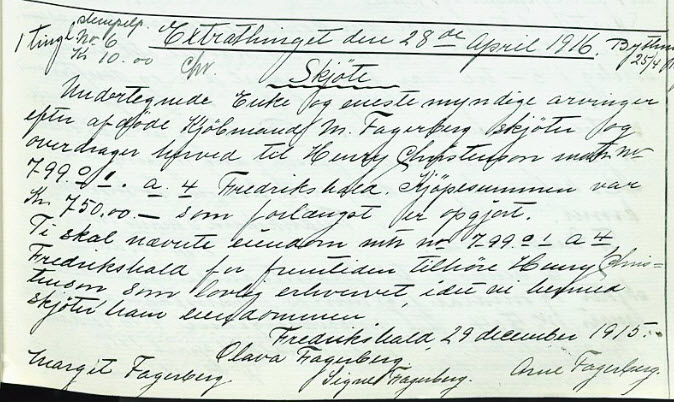 stempelp.
1 tingl No. 6
Kr 10.00
Extrathinget den 28de April 1916.
25/4
Skjöte
Undertegnede Enke og eneste myndige arvinger
efter afdöde Kjöbmand M. Fagerberg skjöter og
overdrager herved til Henry Christenson matr. nr
799. a. 4 Fredrikshald. Kjöpesummen var
Kr. 750.00.— som forlængst er opgjort.
Ti skal nævnte eiendom mtr nr 799. a 4
Fredrikshald for fremtiden tilhöre Henry Chris-
tenson som lovlig erhvervet, idet vi hermed
skjöter ham eiendommen
Fredrikshald, 29 december 1915.
Olava Fagerberg.
Margit Fagerberg. Signe Fagerberg. Arne Fagerberg.